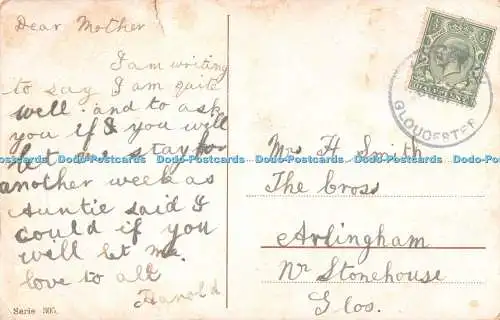 Dear Mother
I am writing
to say I am quite
well. and to ask
you if I you will
let me stay for
another week as
Auntie said I
could if you
will let me.
love to all
Harold
Serie 305.
HALFPENNY
GLOUCESTER
Mrs H Smith
The Cross
Arlingham
Nr Stonehouse
Glos.
Dodo-Postcards Dodo-Postcards Dodo-Postcards Dodo-Postcards Dodo-Postcards Dodo-Postcards